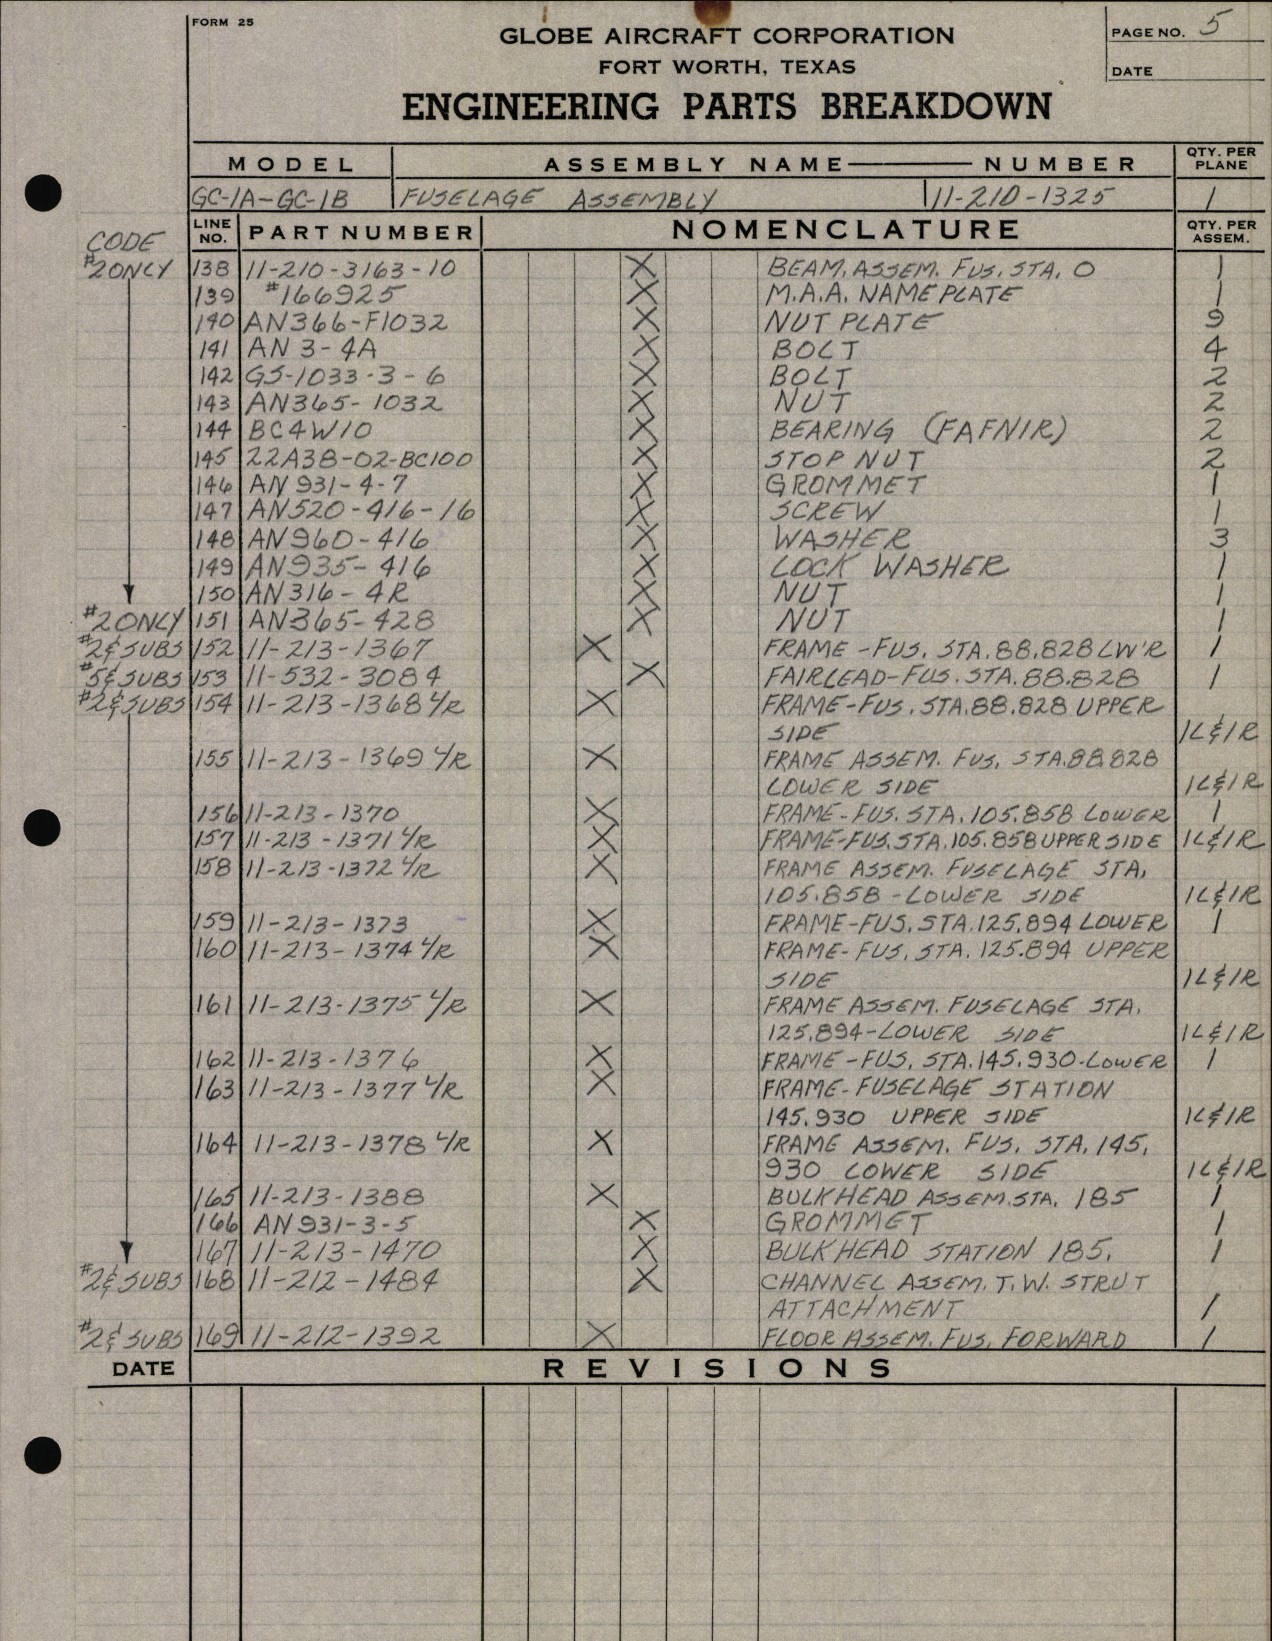 FORM 25
GLOBE AIRCRAFT CORPORATION
FORT WORTH, TEXAS
ENGINEERING PARTS BREAKDOWN
PAGE NO. 5
DATE
MODEL ASSEMBLY NAME NUMBER QTY. PER PLANE
GC-1A-GC-1B FUSELAGE ASSEMBLY 11-210-1325 1
CODE LINE NO. PART NUMBER NOMENCLATURE QTY. PER ASSEM.
#2 ONLY 138 11-210-3163-10 X BEAM, ASSEM. FUS. STA. O 1
139 #166925 X M.A.A. NAME PLATE 1
140 AN366-F1032 X NUT PLATE 9
141 AN 3-4A X BOLT 4
142 GS-1033-3-6 X BOLT 2
143 AN365-1032 X NUT 2
144 BC4W10 X BEARING (FAFNIR) 2
145 22A38-02-BC100 X STOP NUT 2
146 AN 931-4-7 X GROMMET 1
147 AN520-416-16 X SCREW 1
148 AN960-416 X WASHER 3
149 AN935-416 X LOCK WASHER 1
150 AN316-4R X NUT 1
#2 ONLY 151 AN365-428 X NUT 1
#2 & SUBS 152 11-213-1367 X FRAME - FUS. STA. 88.828 LW'R 1
#5 & SUBS 153 11-532-3084 X FAIRLEAD-FUS. STA. 88.828 1
#2 & SUBS 154 11-213-1368 L/R X FRAME-FUS. STA. 88.828 UPPER
SIDE 1L & 1R
155 11-213-1369 L/R X FRAME ASSEM. FUS. STA. 88.828
LOWER SIDE 1L & 1R
156 11-213-1370 X FRAME-FUS. STA. 105.858 LOWER 1
157 11-213-1371 L/R X FRAME-FUS. STA. 105.858 UPPER SIDE 1L & 1R
158 11-213-1372 L/R X FRAME ASSEM. FUSELAGE STA.
105.858 - LOWER SIDE 1L & 1R
159 11-213-1373 X FRAME-FUS. STA. 125.894 LOWER 1
160 11-213-1374 L/R X FRAME-FUS. STA. 125.894 UPPER
SIDE 1L & 1R
161 11-213-1375 L/R X FRAME ASSEM. FUSELAGE STA.
125.894-LOWER SIDE 1L & 1R
162 11-213-1376 X FRAME-FUS. STA. 145.930-LOWER 1
163 11-213-1377 L/R X FRAME-FUSELAGE STATION
145.930 UPPER SIDE 1L & 1R
164 11-213-1378 L/R X FRAME ASSEM. FUS. STA. 145.
930 LOWER SIDE 1L & 1R
165 11-213-1388 X BULKHEAD ASSEM. STA. 185 1
166 AN 931-3-5 X GROMMET 1
167 11-213-1470 X BULKHEAD STATION 185. 1
#2 & SUBS 168 11-212-1484 X CHANNEL ASSEM. T.W. STRUT
ATTACHMENT 1
#2 & SUBS 169 11-212-1392 X FLOOR ASSEM. FUS. FORWARD 1
DATE REVISIONS